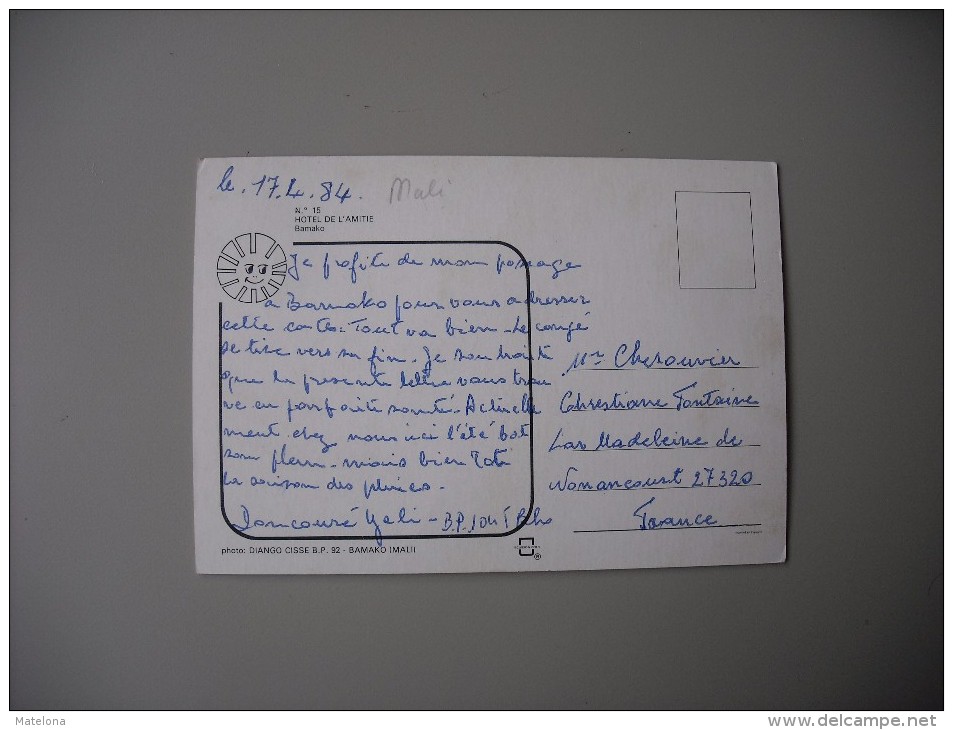 le. 17.4.84.
Mali
N.° 15
HOTEL DE L'AMITIE
Bamako
Je profite de mon passage
a Bamako pour vous adresser
cette carte. Tout va bien - Le congé
se tire vers sa fin. Je souhaite
que la presente lettre vous trou
ve en parfaite santé. Actuelle
ment chez nous ici l'été bat
son plein - mais bien
la saison des pluies -
B.P.
photo: DIANGO CISSE B.P. 92 - BAMAKO (MALI)
®
Cherouvier
Chrestiane Fontaine
Madeleine de
Nonancourt 27320
France
Matelona
www.delcampe.net